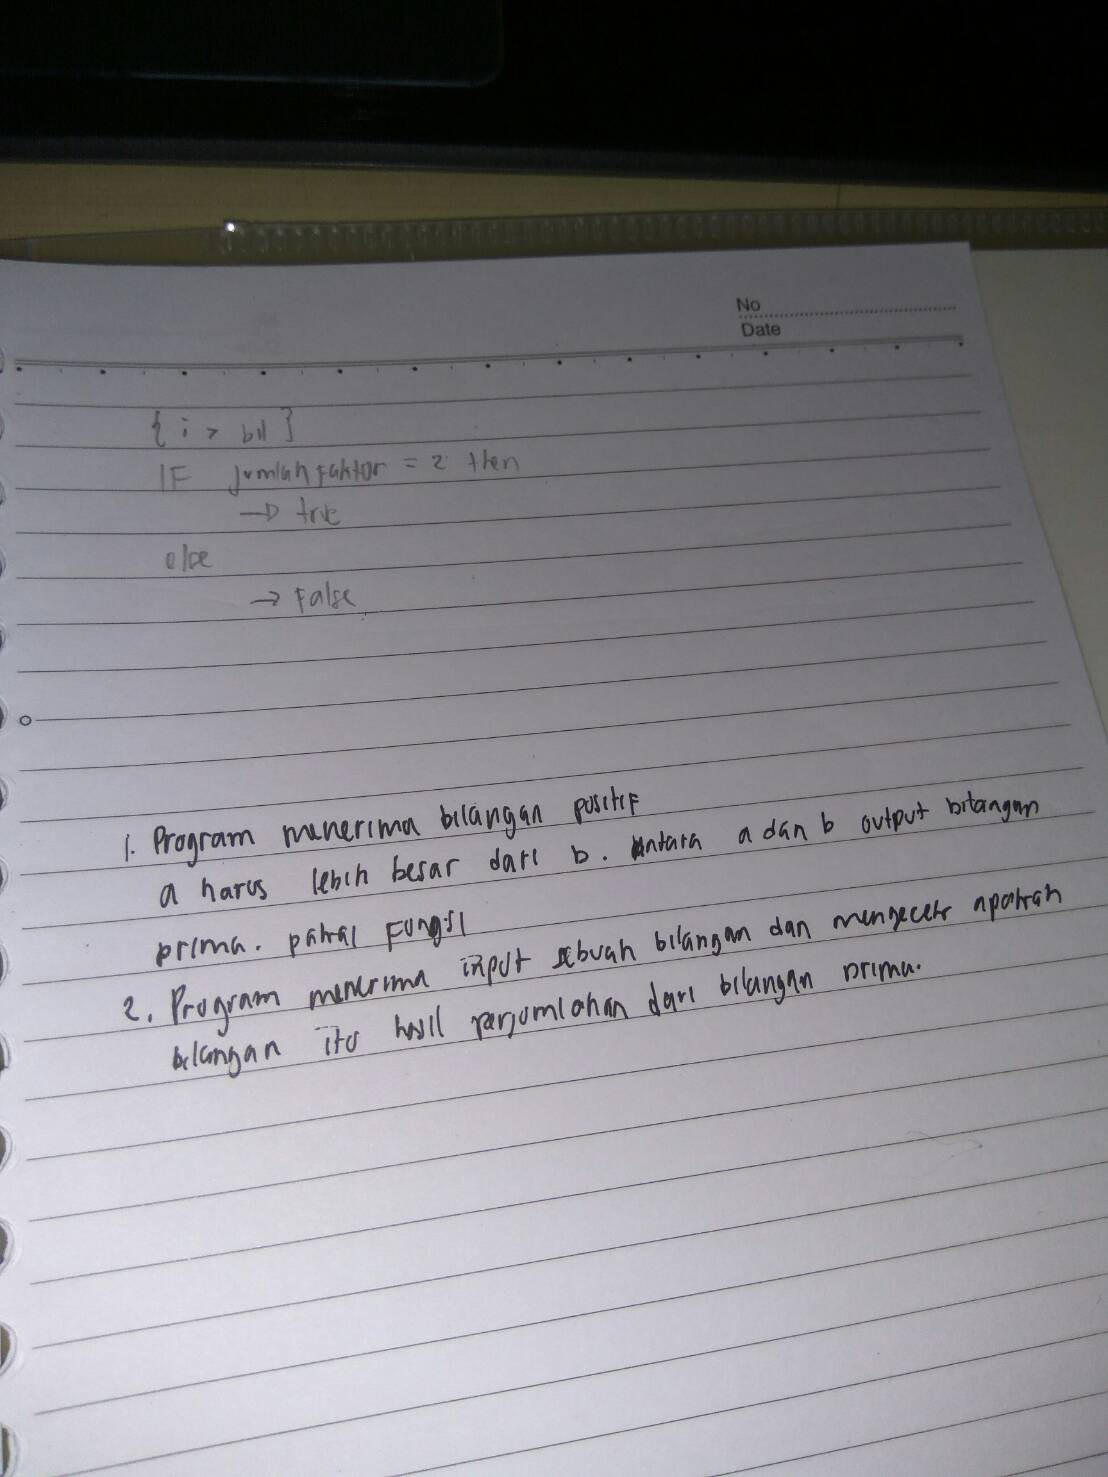 No
Date
{ i > bil }
IF jumlahfaktor = 2 then
→ true
else
→ False
1. Program menerima bilangan positif
a harus lebih besar dari b. Antara a dan b output bilangan
prima. pakai Fungsi
2. Program menerima input sebuah bilangan dan mengecek apakah
bilangan itu hasil penjumlahan dari bilangan prima.